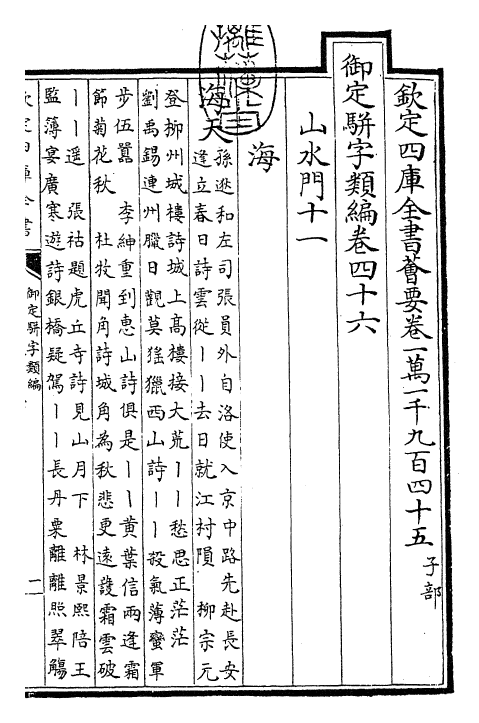 欽定四庫全書薈要卷一萬一千九百四十五子部
御定駢字類編卷四十六
山水門十一
海
海天
孫逖和左司張員外自洛使入京中路先赴長安
逢立春日詩雲從丨丨去日就江村隕　柳宗元
登柳州城樓詩城上高樓接大荒丨丨愁思正茫茫
劉禹錫連州臘日觀莫猺獵西山詩丨丨殺氣薄蠻軍
步伍囂　李紳重到惠山詩俱是丨丨黃葉信兩逢霜
節菊花秋　杜牧聞角詩城角為秋悲更遠護霜雲破
丨丨遥　張祜題虎丘寺詩見山月下　林景熙陪王
監簿宴廣寒遊詩銀橋疑駕丨丨長丹粟離離照翠觴
欽定四庫全書
御定駢字類編
二